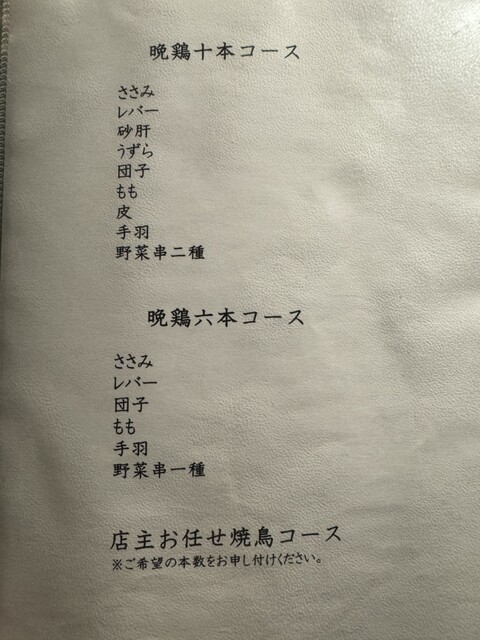 晩鶏十本コース
ささみ
レバー
砂肝
うずら
団子
もも
皮
手羽
野菜串二種
晩鶏六本コース
ささみ
レバー
団子
もも
手羽
野菜串一種
店主お任せ焼鳥コース
※ご希望の本数をお申し付けください。